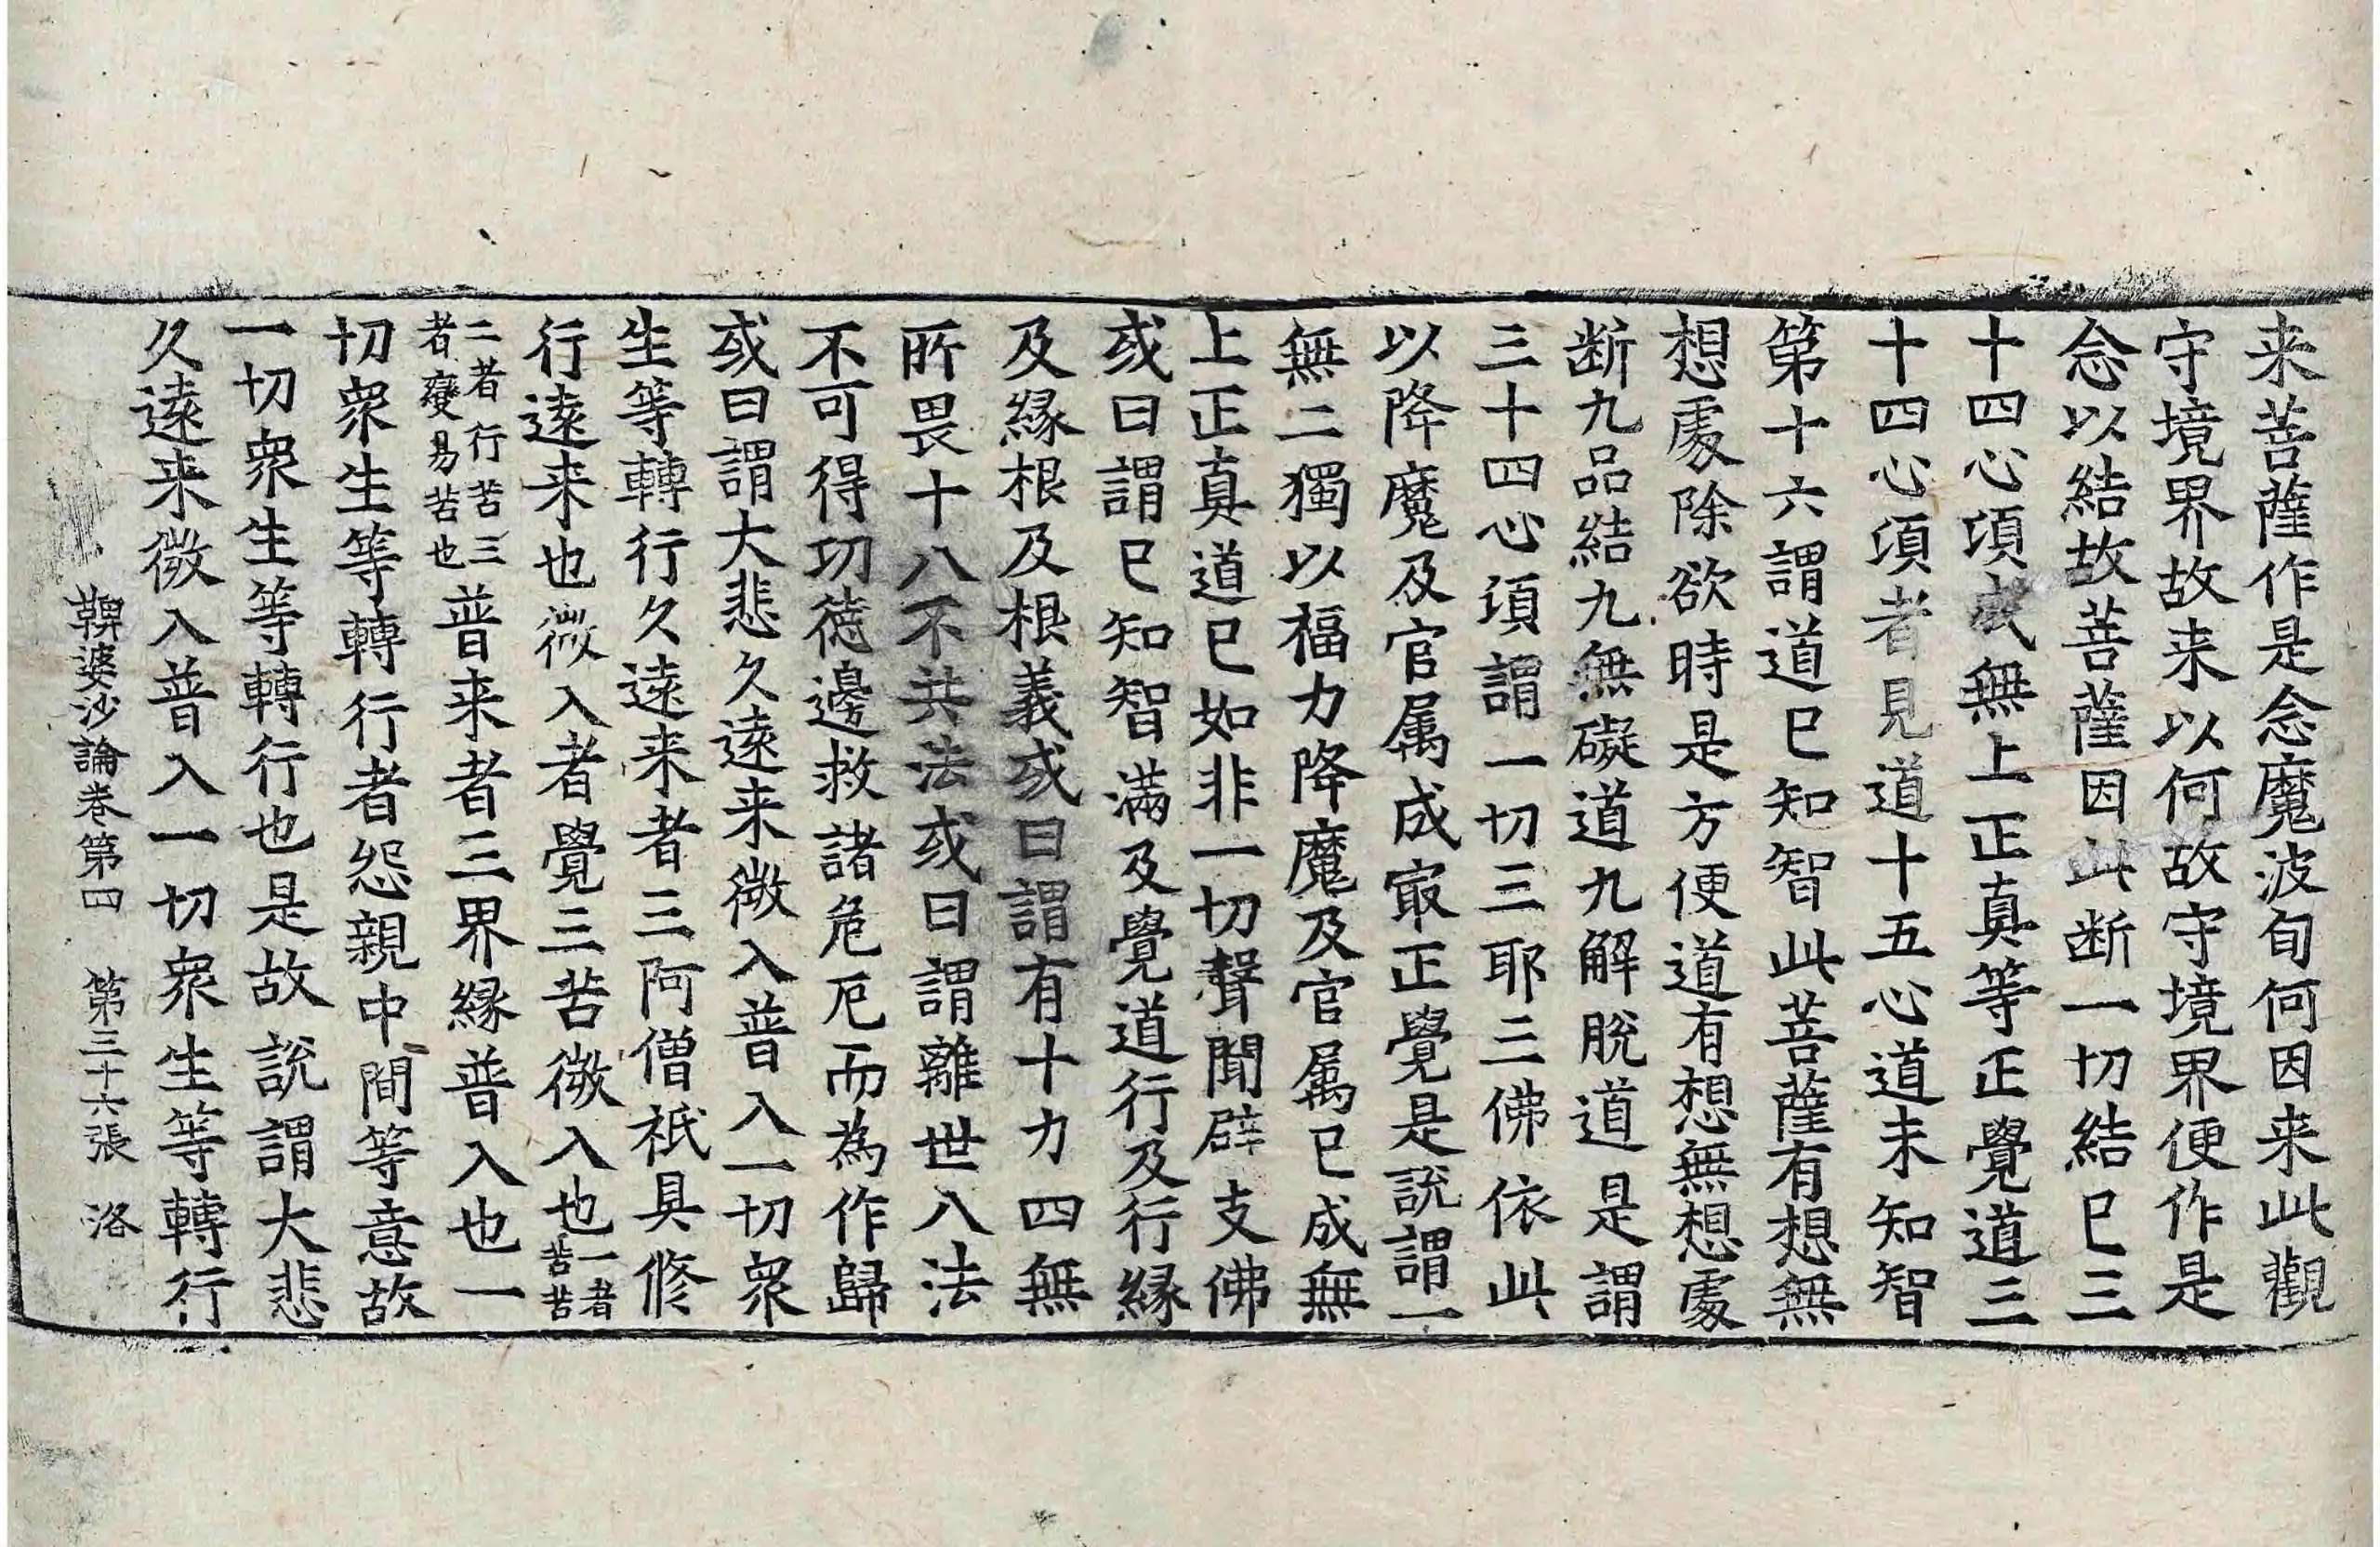 来菩薩作是念魔波旬何因来此觀
守境界故来以何故守境界便作是
念以結故菩薩因此断一切結已三
十四心項成無上正真等正覺道三
十四心項者見道十五心道未知智
第十六謂道已知智此菩薩有想無
想處除欲時是方便道有想無想處
断九品結九無礙道九解脫道是謂
三十四心項謂一切三耶三佛依此
以降魔及官属成㝡正覺是說謂一
無二獨以福力降魔及官属已成無
上正真道已如非一切聲聞辟支佛
或曰謂已知智滿及覺道行及行緣
及緣根及根義或曰謂有十力四無
所畏十八不共法或曰謂離世八法
不可得功德邊救諸危厄而為作歸
或曰謂大悲久遠来微入普入一切衆
生等轉行久遠来者三阿僧祇具修
行遠来也微入者覺三苦微入也一者苦苦
二者行苦三者變易苦也普来者三界緣普入也一
切衆生等轉行者怨親中間等意故
一切衆生等轉行也是故說謂大悲
久遠来微入普入一切衆生等轉行
鞞婆沙論卷第四 第三十六張 洛